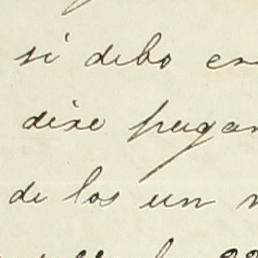 si debo en
dixe pagar
de los un